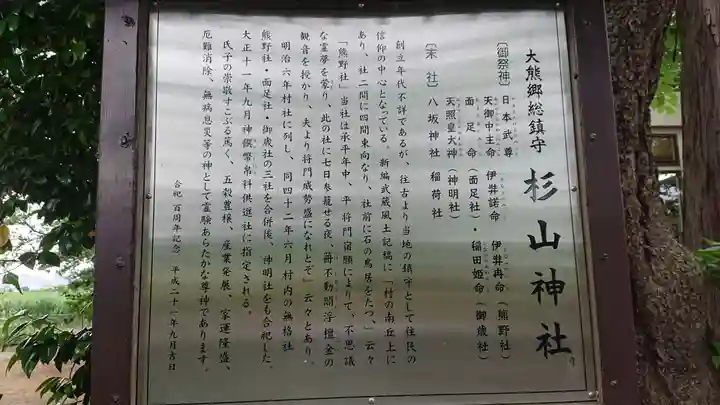 大熊郷総鎮守 杉山神社
〔御祭神〕日本武尊
天御中主命 伊弉諾命 伊弉冉命(熊野社)
面足命(面足社)・稲田姫命(御歳社)
天照皇大神(神明社)
〔末社〕八坂神社 稲荷社
創立年代不詳であるが、往古より当地の鎮守として住民の
信仰の中心となっている。新編武蔵風土記稿に「村の南丘上に
あり、社二間に四間東向なり、社前に石の鳥居をたつ、」云々
「熊野社」当社は承平年中、平将門宿願によりて、不思議
な霊夢を蒙り、此の社に七日参籠せる夜、毋不動閻浮檀金の
観音を授かり、夫より将門威勢盛になれとぞ」云々とあり。
明治六年村社に列し、同四十二年六月村内の無格社
熊野社・面足社・御歳社の三社を合併後、神明社をも合祀した。
大正十一年九月神饌幣帛料供進社に指定される。
氏子の崇敬すこぶる篤く、五穀豊穣、産業発展、家運隆盛、
厄難消除、無病息災等の神として霊験あらたかな尊神であります。
合祀百周年記念 平成二十一年九月吉日